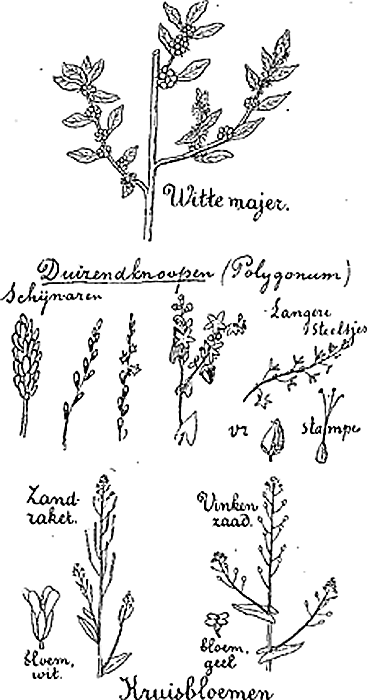 Witte majer.
Duizendknoopen (Polygonum)
Schijnaren
Langere
steeltjes
vr
stamper
Zand-
raket.
Vinken
zaad.
bloem,
wit.
bloem,
geel
Kruisbloemen